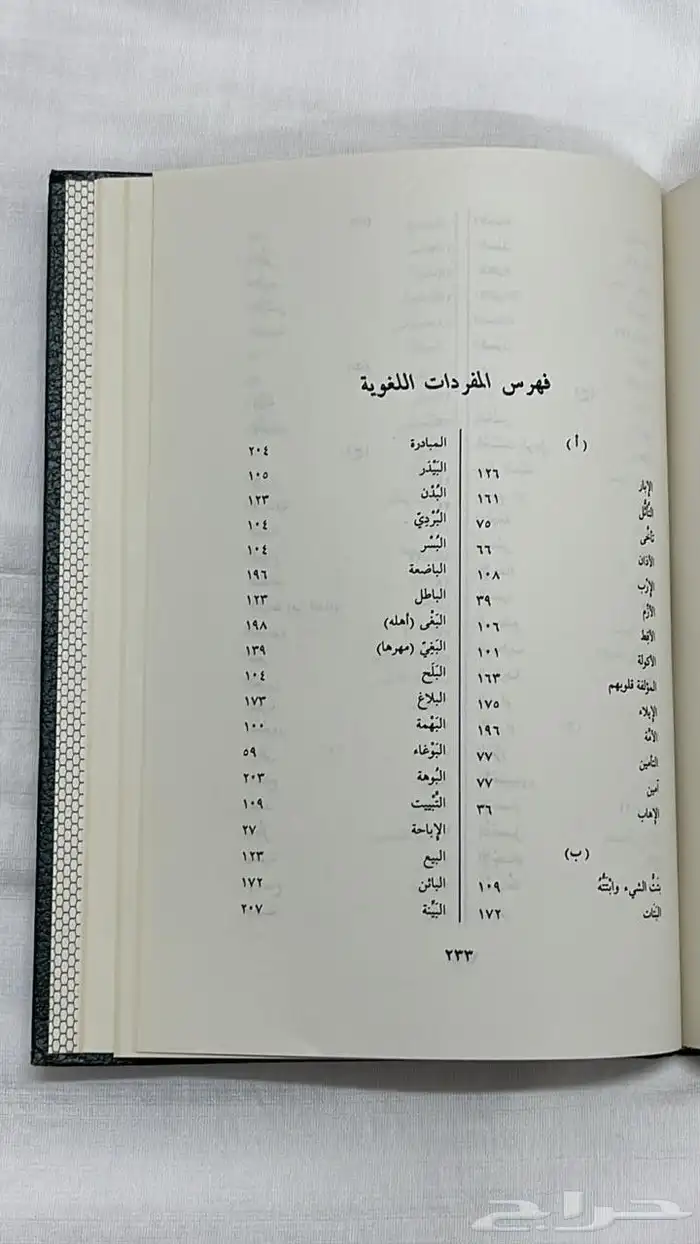 فهرس المفردات اللغوية
(أ)
الإبار ١٢٦
التأثّل ١٦١
تأخى ٧٥
الأذان ٦٦
الإرب ١٠٨
الأزم ٣٩
الأقط ١٠٦
الأكولة ١٠١
المؤلفة قلوبهم ١٦٣
الإيلاء ١٧٥
الأمّة ١٩٦
التأمين ٧٧
آمين ٧٧
الإهاب ٣٦
(ب)
بَتُّ الشيء وابْتَتُّهُ ١٠٩
البتات ١٧٢
المبادرة ٢٠٤
البَيْدَر ١٠٥
البُدْن ١٢٣
البُرْدِيّ ١٠٤
البُسْر ١٠٤
الباضعة ١٩٦
الباطل ١٢٣
البَغْى (أهله) ١٩٨
البَغِيّ (مهرها) ١٣٩
البَلَح ١٠٤
البلاغ ١٧٣
البَهْمة ١٠٠
البَوْغاء ٥٩
البُوهة ٢٠٣
التَّبييت ١٠٩
الإباحة ٢٧
البيع ١٢٣
البائن ١٧٢
البَيِّنة ٢٠٧
٢٣٣
حراج